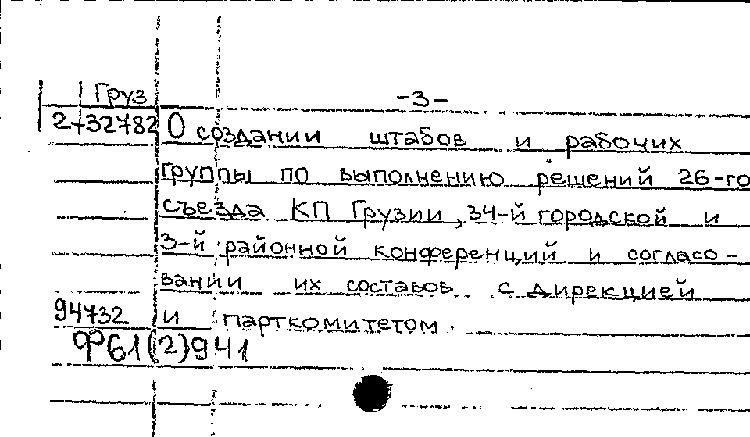 Груз -3-
2-32782 О создании штабов и рабочих
группы по выполнению решений 26-го
съезда КП Грузии, 34-й городской и
3-й районной конференций и согласо-
вании их составов с дирекцией
94732 и парткомитетом.
Ф61(2)941